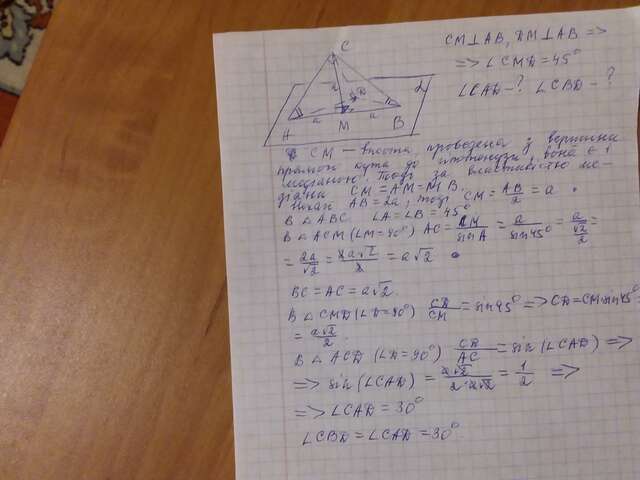 CM⊥AB, DM⊥AB =>
=> ∠CMD = 45°
∠CAD - ? ∠CBD - ?
C
α
D
a a
A M B
CM — висота, проведена з вершини
прямого кута до гіпотенузи, вона є і
медіаною. Тоді за властивістю ме-
діани CM = AM = MB.
Нехай AB = 2a, тоді CM = AB/2 = a.
В △ABC ∠A = ∠B = 45°
В △ACM (∠M = 90°) AC = CM/sin A = a/sin 45° = a/(√2/2) =
= 2a/√2 = 2a√2/2 = a√2
BC = AC = a√2.
В △CMD (∠D = 90°) CD/CM = sin 45° => CD = CM sin 45° =
= a√2/2.
В △ACD (∠D = 90°) CD/AC = sin(∠CAD) =>
=> sin(∠CAD) = a√2/(2·a√2) = 1/2 =>
=> ∠CAD = 30°
∠CBD = ∠CAD = 30°